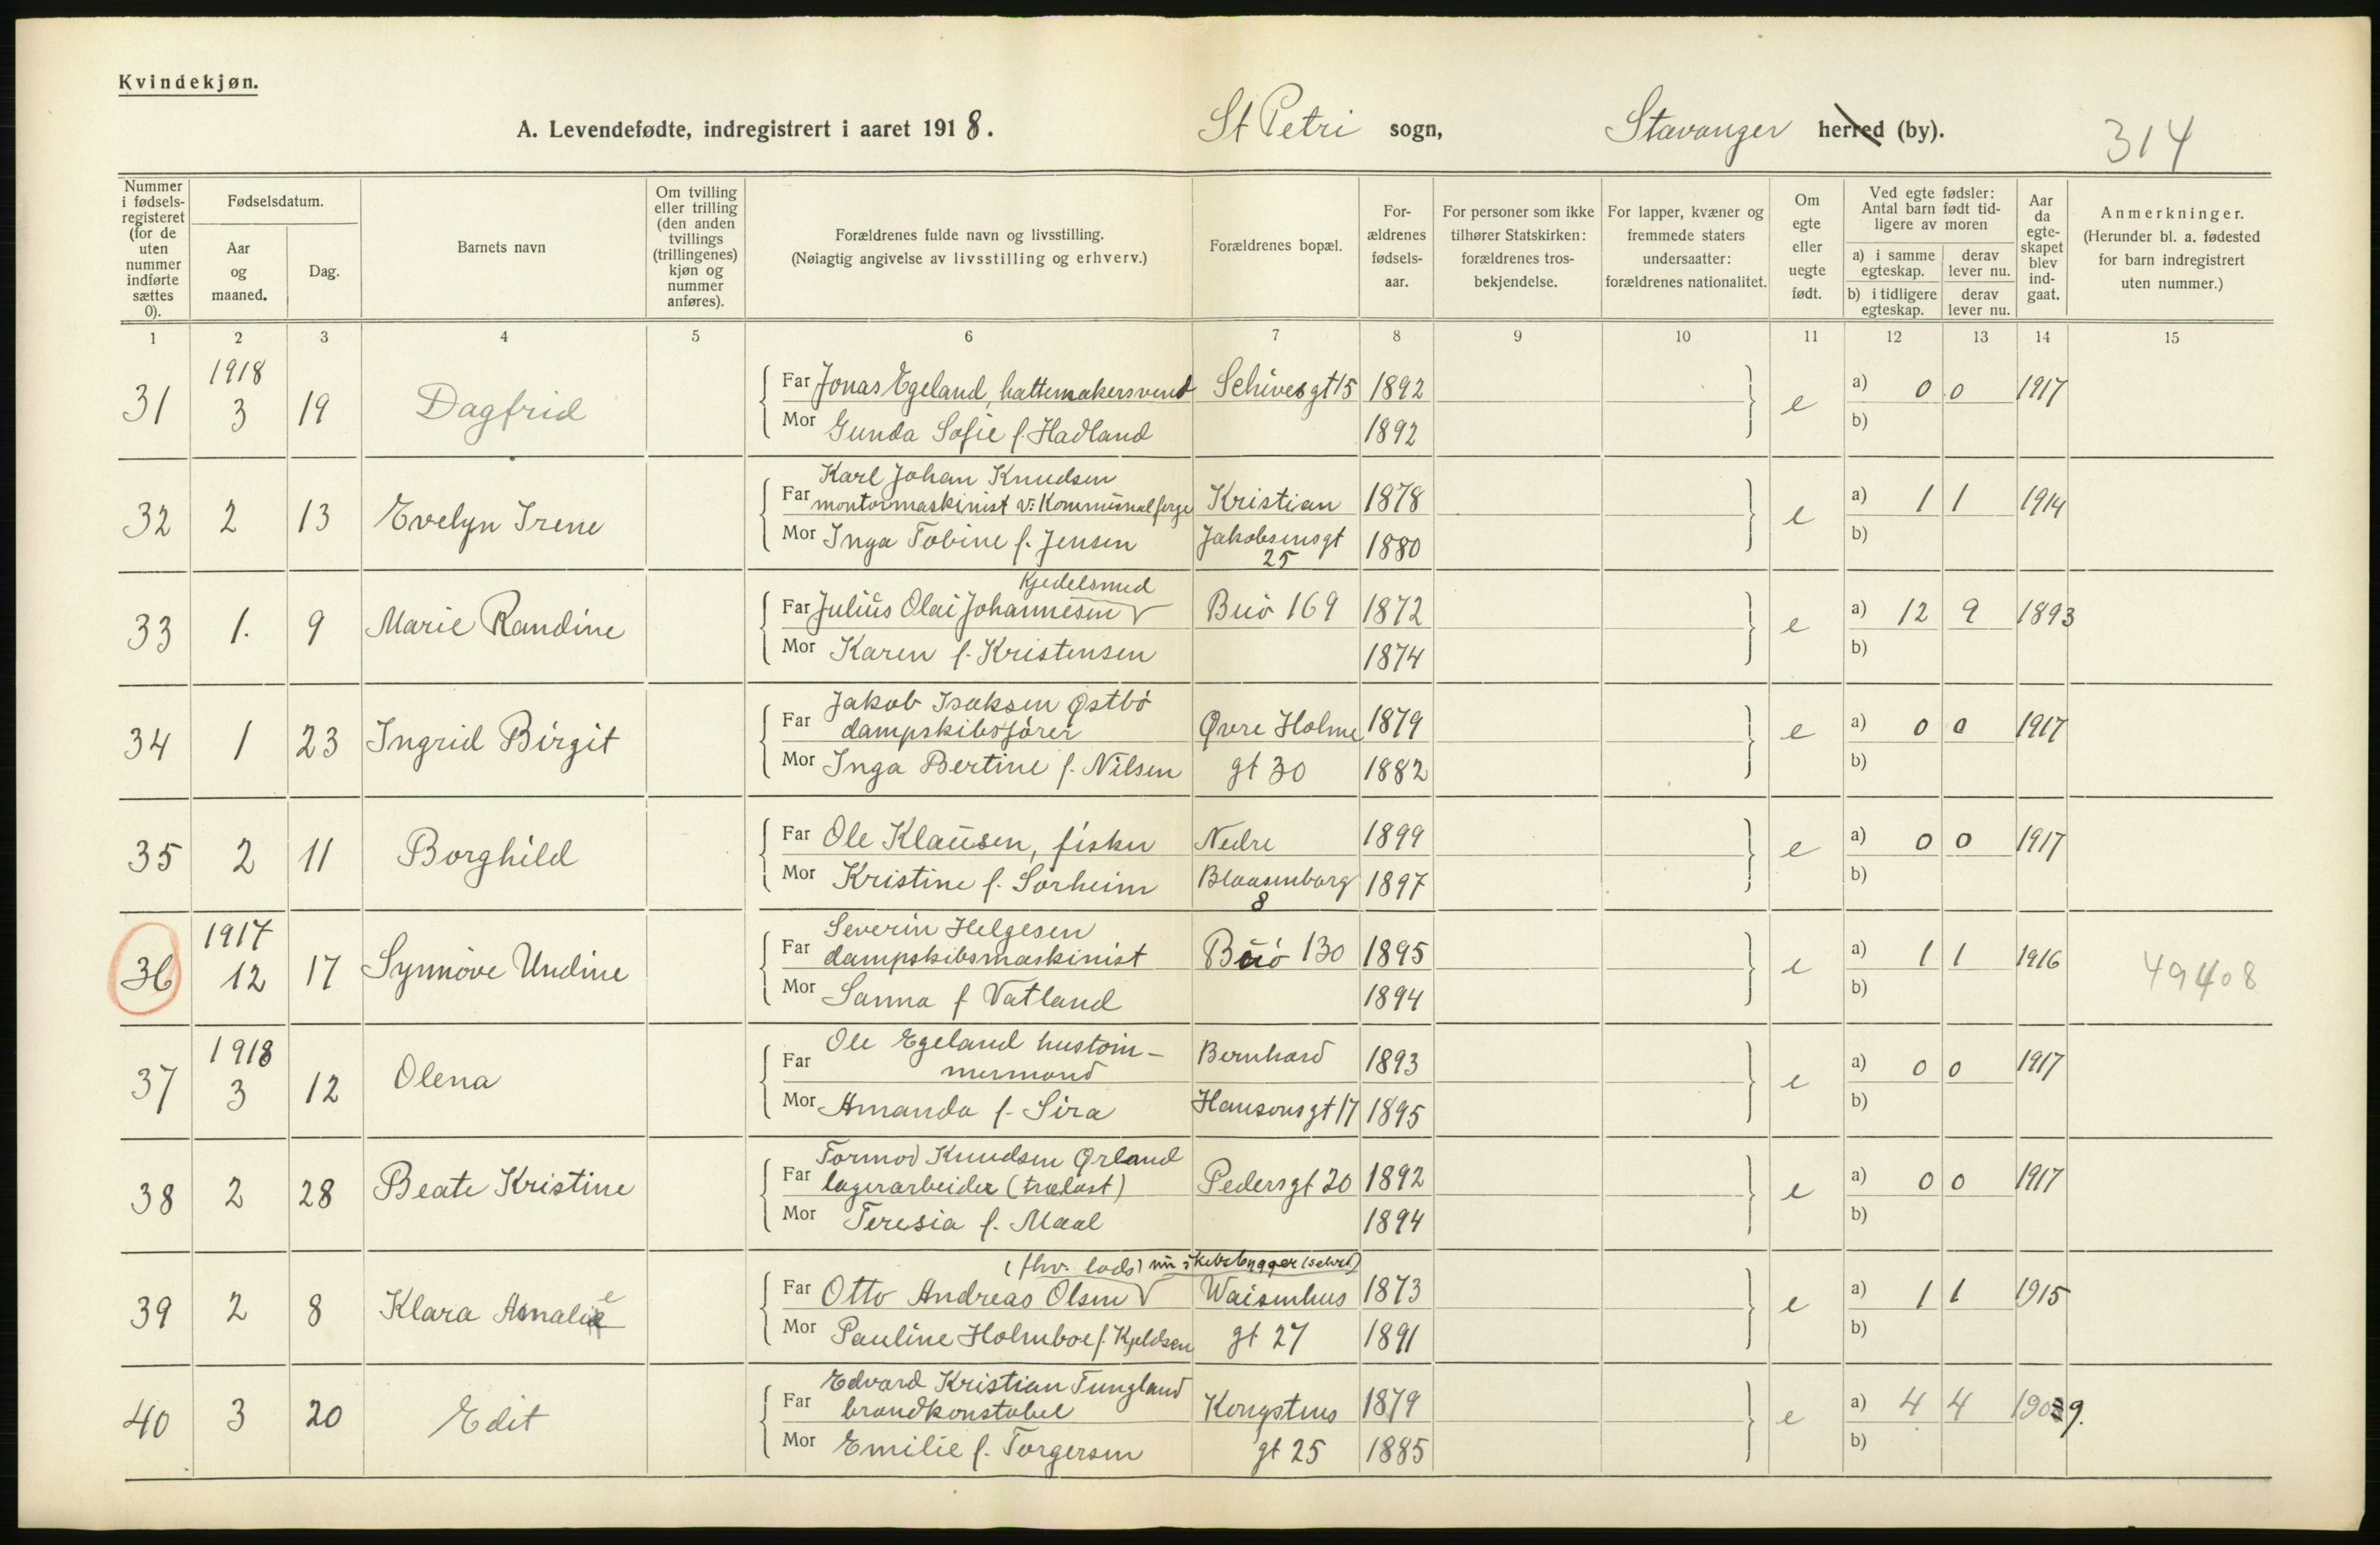 Kvindekjøn.
A. Levendefødte, indregistrert i aaret 1918. St Petri sogn, Stavanger herred (by). 314
Nummer i fødsels-registeret (for de uten nummer indførte sættes 0).
Fødselsdatum.
Aar og maaned.
Dag.
Barnets navn
Om tvilling eller trilling (den anden tvillings (trillingenes) kjøn og nummer anføres).
Forældrenes fulde navn og livsstilling.
(Nøiagtig angivelse av livsstilling og erhverv.)
Forældrenes bopæl.
For-ældrenes fødsels-aar.
For personer som ikke tilhører Statskirken: forældrenes tros-bekjendelse.
For lapper, kvæner og fremmede staters undersaatter: forældrenes nationalitet.
Om egte eller uegte født.
Ved egte fødsler: Antal barn født tid-ligere av moren
a) i samme egteskap. derav lever nu.
b) i tidligere egteskap. derav lever nu.
Aar da egte-skapet blev ind-gaat.
Anmerkninger.
(Herunder bl. a. fødested for barn indregistrert uten nummer.)
1 2 3 4 5 6 7 8 9 10 11 12 13 14 15
31 1918 3 19 Dagfrid Far Jonas Egeland, hattemakersvend Schivesgt 15 1892 e a) 0 0 1917
Mor Gunda Sofie f. Hadland 1892 b)
Karl Johan Knudsen
32 2 13 Evelyn Irene Far montørmaskinist v: Kommunal ferge Kristian 1878 e a) 1 1 1914
Mor Inga Tobine f. Jensen Jakobsensgt 25 1880 b)
Kjedelsmed
33 1. 9 Marie Randine Far Julius Olai Johannesen Buø 169 1872 e a) 12 9 1893
Mor Karen f. Kristensen 1874 b)
Jakob Isaksen Østbø
34 1 23 Ingrid Birgit Far dampskibsfører Øvre Holme 1879 e a) 0 0 1917
Mor Inga Bertine f. Nilsen gt 30 1882 b)
35 2 11 Borghild Far Ole Klausen, fisker Nedre 1899 e a) 0 0 1917
Mor Kristine f. Sørheim Blaasenborg 8 1897 b)
1917 Severin Helgesen
36 12 17 Synnøve Undine Far dampskibsmaskinist Buø 130 1895 e a) 1 1 1916 49408
Mor Sanna f Vatland 1894 b)
1918 Ole Egeland hustøm-
37 3 12 Olena Far mermand Bernhard 1893 e a) 0 0 1917
Mor Amanda f. Sira Hansensgt 17 1895 b)
Tormod Knudsen Ørland
38 2 28 Beate Kristine Far lagerarbeider (trælast) Pedersgt 20 1892 e a) 0 0 1917
Mor Teresia f. Maal 1894 b)
(fhv. lods) nu skibsbygger (selvst)
39 2 8 Klara Amalie Far Otto Andreas Olsen Waisenhus 1873 e a) 1 1 1915
Mor Pauline Holmboe f. Kjeldsen gt 27 1891 b)
Edvard Kristian Tungland
40 3 20 Edit Far brandkonstabel Kongstens 1879 e a) 4 4 1909.
Mor Emilie f. Torgersen gt 25 1885 b)